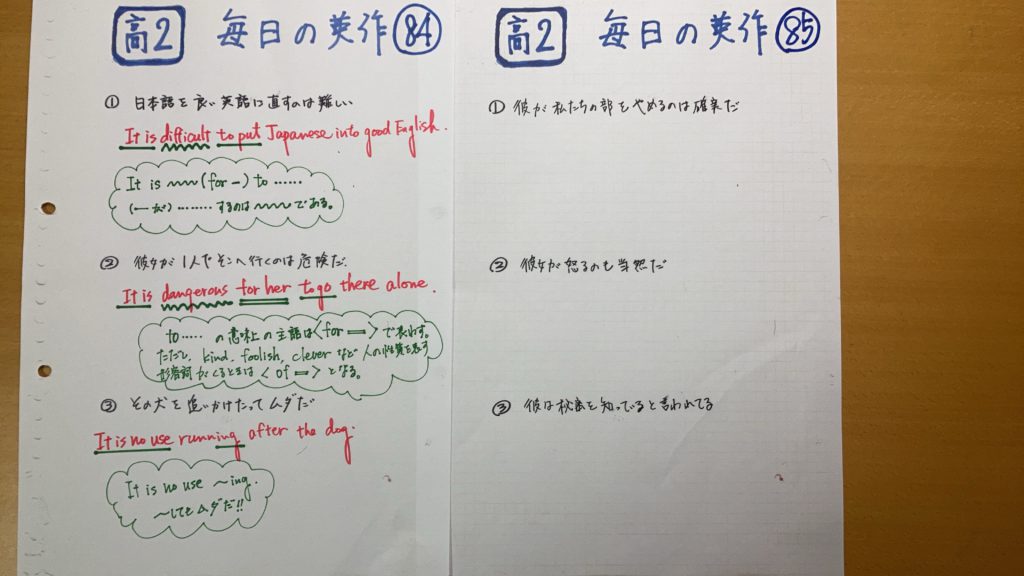 高2 毎日の英作 84
① 日本語を良い英語に直すのは難しい
It is difficult to put Japanese into good English.
It is 〰〰 (for −) to ……
(− が) ……… するのは 〰〰 である。
② 彼女が1人でそこへ行くのは危険だ.
It is dangerous for her to go there alone.
to …… の意味上の主語は〈for ＝〉で表わす。
ただし, kind, foolish, clever など 人の性質を表す
形容詞がくるときは 〈of ＝〉となる。
③ その犬を追いかけたってムダだ
It is no use running after the dog.
It is no use 〜ing.
〜してもムダだ!!
高2 毎日の英作 85
① 彼が私たちの部をやめるのは確実だ
② 彼女が怒るのも当然だ
③ 彼は秘密を知っていると言われてる